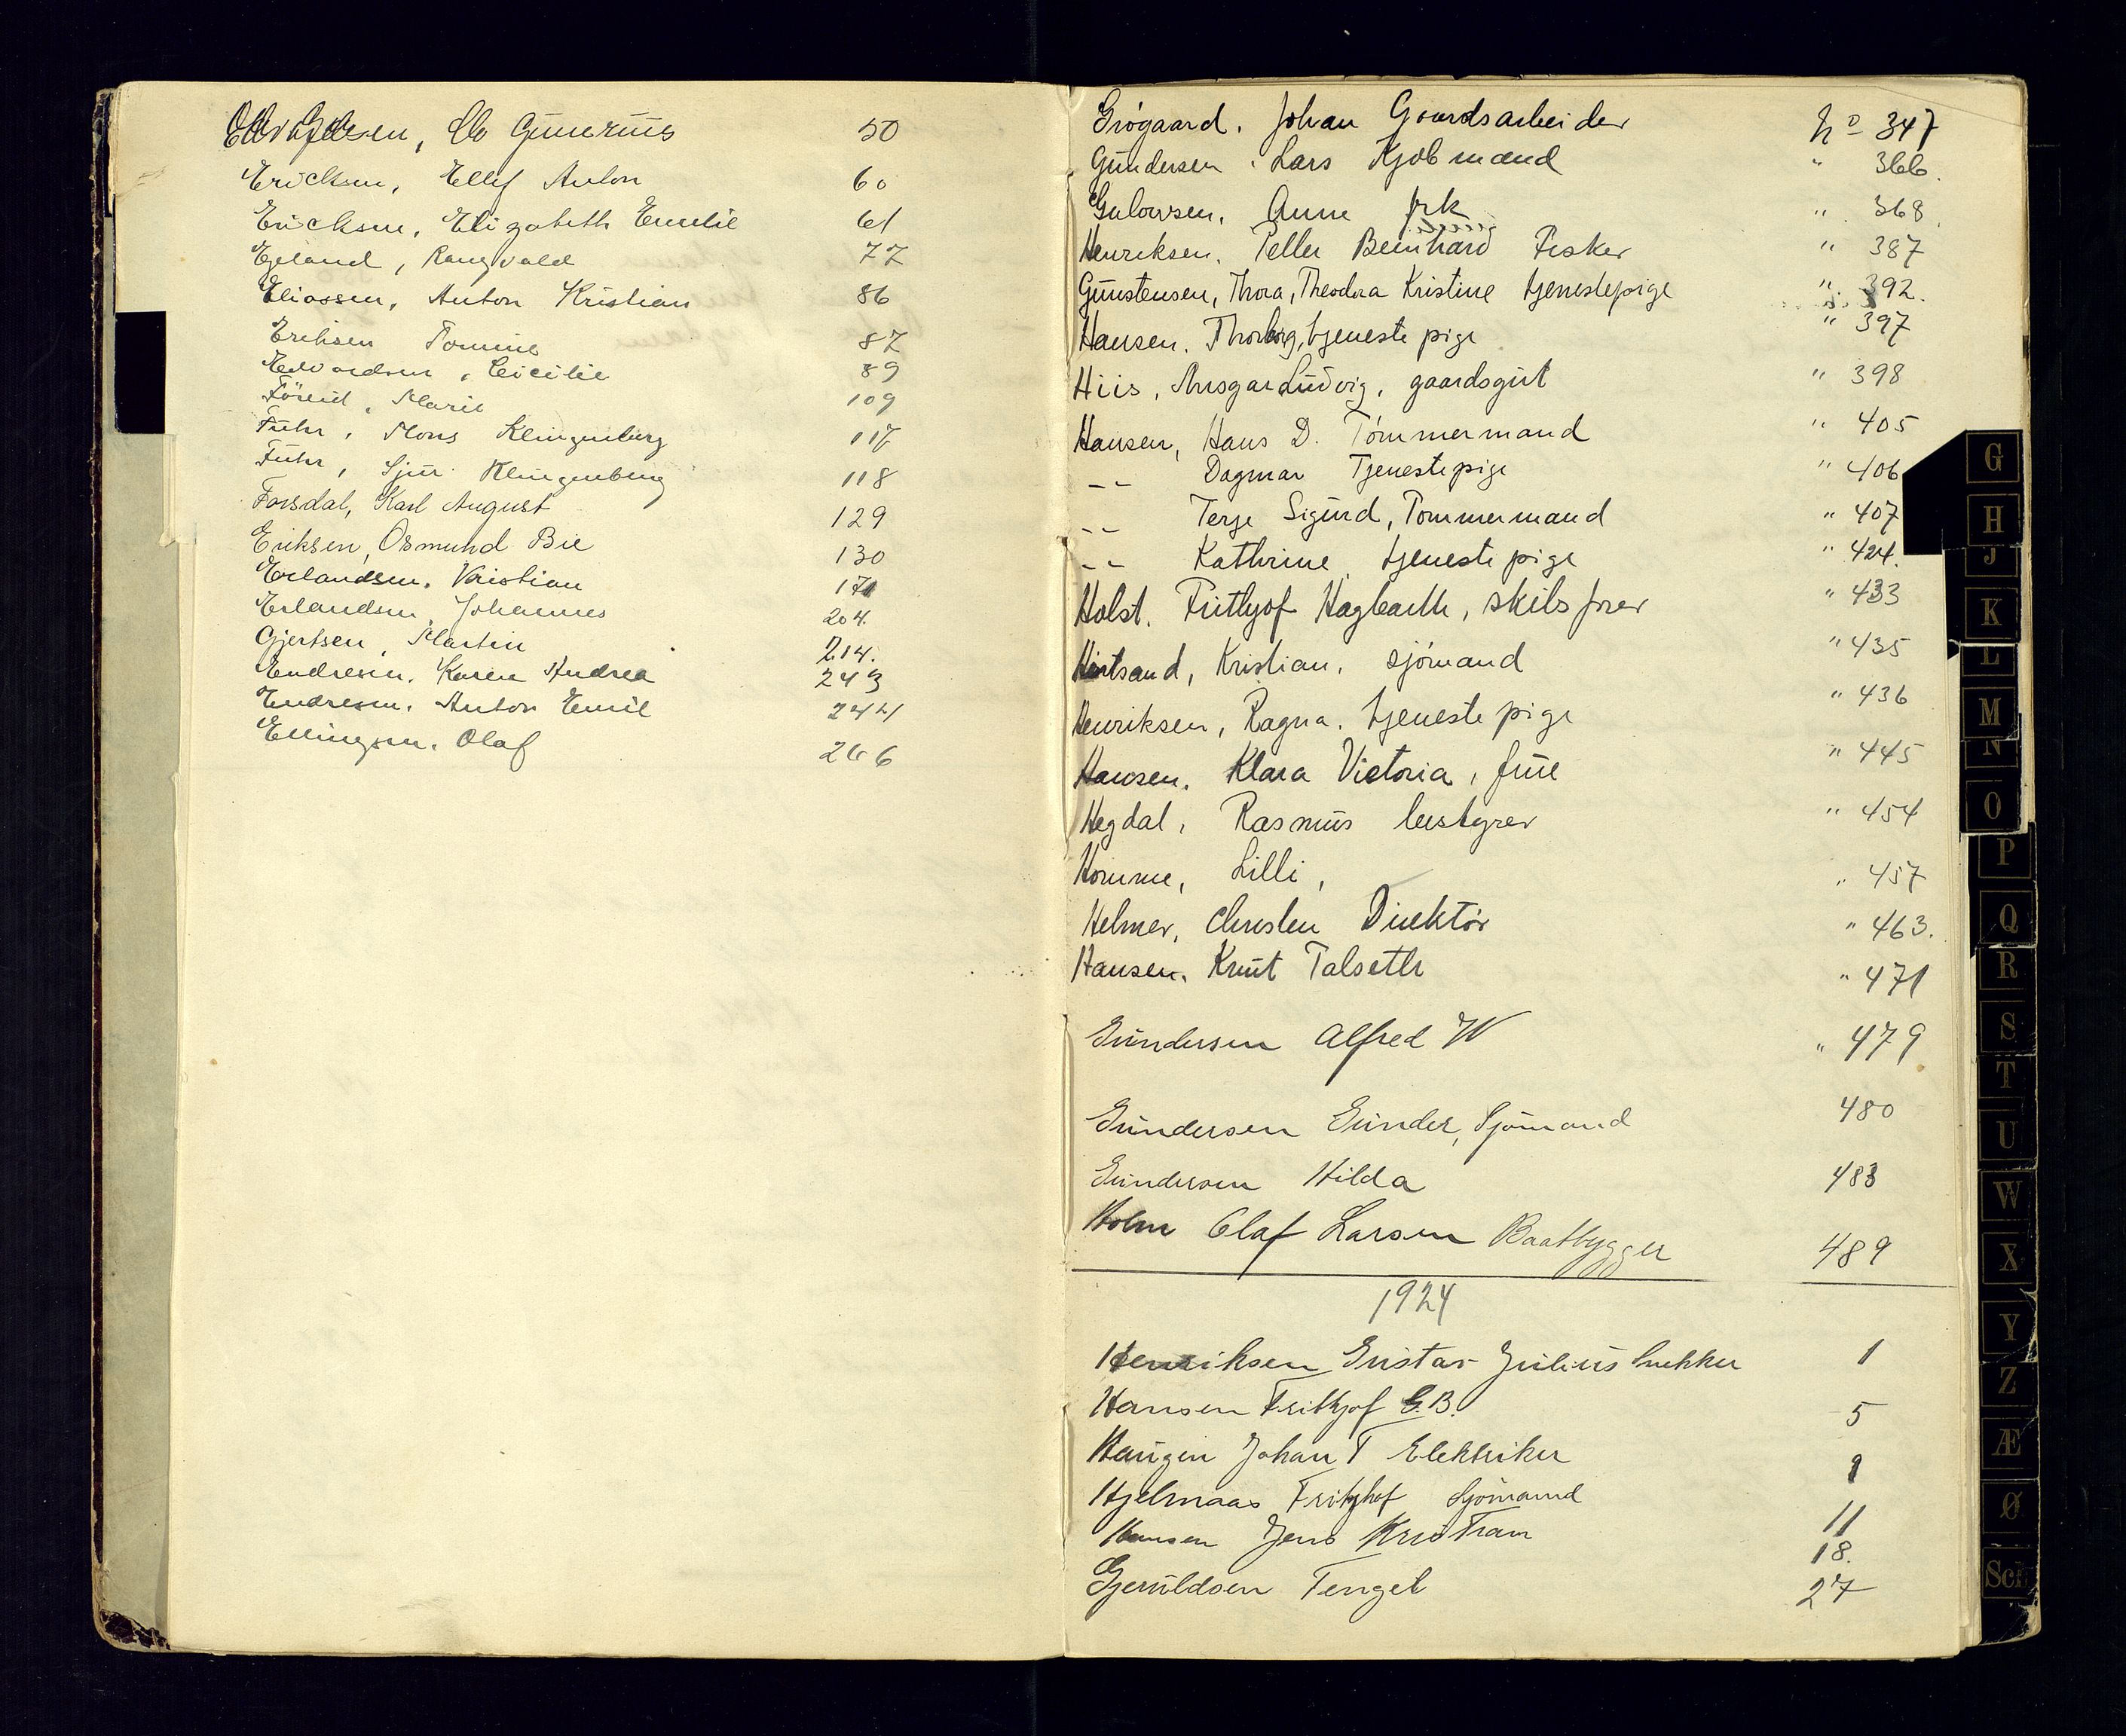 Gunerius 50
Ericksen, Ellef Anton 60
Ericksen, Elizabeth Emelie 61
Egeland, Rangvald 77
Eliassen, Anton Kristian 86
Eriksen Tomine 87
Edvardsen, Cicilie 89
Marie 109
Fuhr, Mons Klingenberg 117
Fuhr, Sjur Klingenberg 118
Forsdal, Karl August 129
Eriksen, Osmund Bie 130
Erlandsen, Kristian 171
Erlandsen, Johannes 204.
Gjertsen, Martin 214.
Endresen, Karen Andrea 243
Endresen, Anton Emil 244
Ellingsen, Olaf 266
Grógaard, Johan Gaardsarbeider No 347
Gundersen, Lars Kjøbmand " 366.
Gulowsen, Anne frk " 368.
Henriksen, Peller Bernhard Fisker " 387
Gunstensen, Thora, Theodora Kristine tjenestepige " 392.
Hansen, Thorborg, tjeneste pige " 397
Hiis, Ansgar Ludvig, gaardsgut " 405
Hansen, Hans D. Tómmermand " 405
-- Dagmar Tjenestepige " 406
-- Terje Sigurd, Tommermand " 407
-- Kathrine, tjeneste pige " 424.
Holst, Frithjof Hagbarth, skibsfører " 433
Kristian, sjómand " 435
Henriksen, Ragna, tjeneste pige " 436
Hansen, Klara Victoria, frue " 445
Hegdal, Rasmus bestyrer " 454
Homme, Lilli, " 457
Helmer, Christen Direktór " 463.
Hansen, Knut Talseth " 471
Gundersen Alfred W " 479
Gundersen Gunder, Sjömand 480
Gundersen Hilda 483
Holm Olaf Larsen Baatbygger 489
1924
Henriksen Gustav Julius Snekker 1
Hansen Frithjof G.B. 5
Haugen Johan T Elektriker 9
Hjelmaas Frithjof Sjömand 11
Hansen Jens Kristian 18.
Gjeruldsen Tengel 27
G
H
J
K
L
M
N
O
P
Q
R
S
T
U
W
X
Y
Z
Æ
Ø
Sch